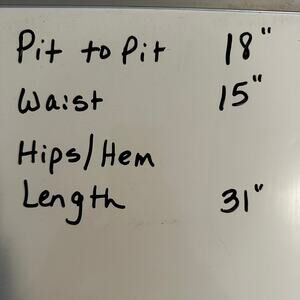 Pit to Pit 18"
Waist 15"
Hips/Hem
Length 31"